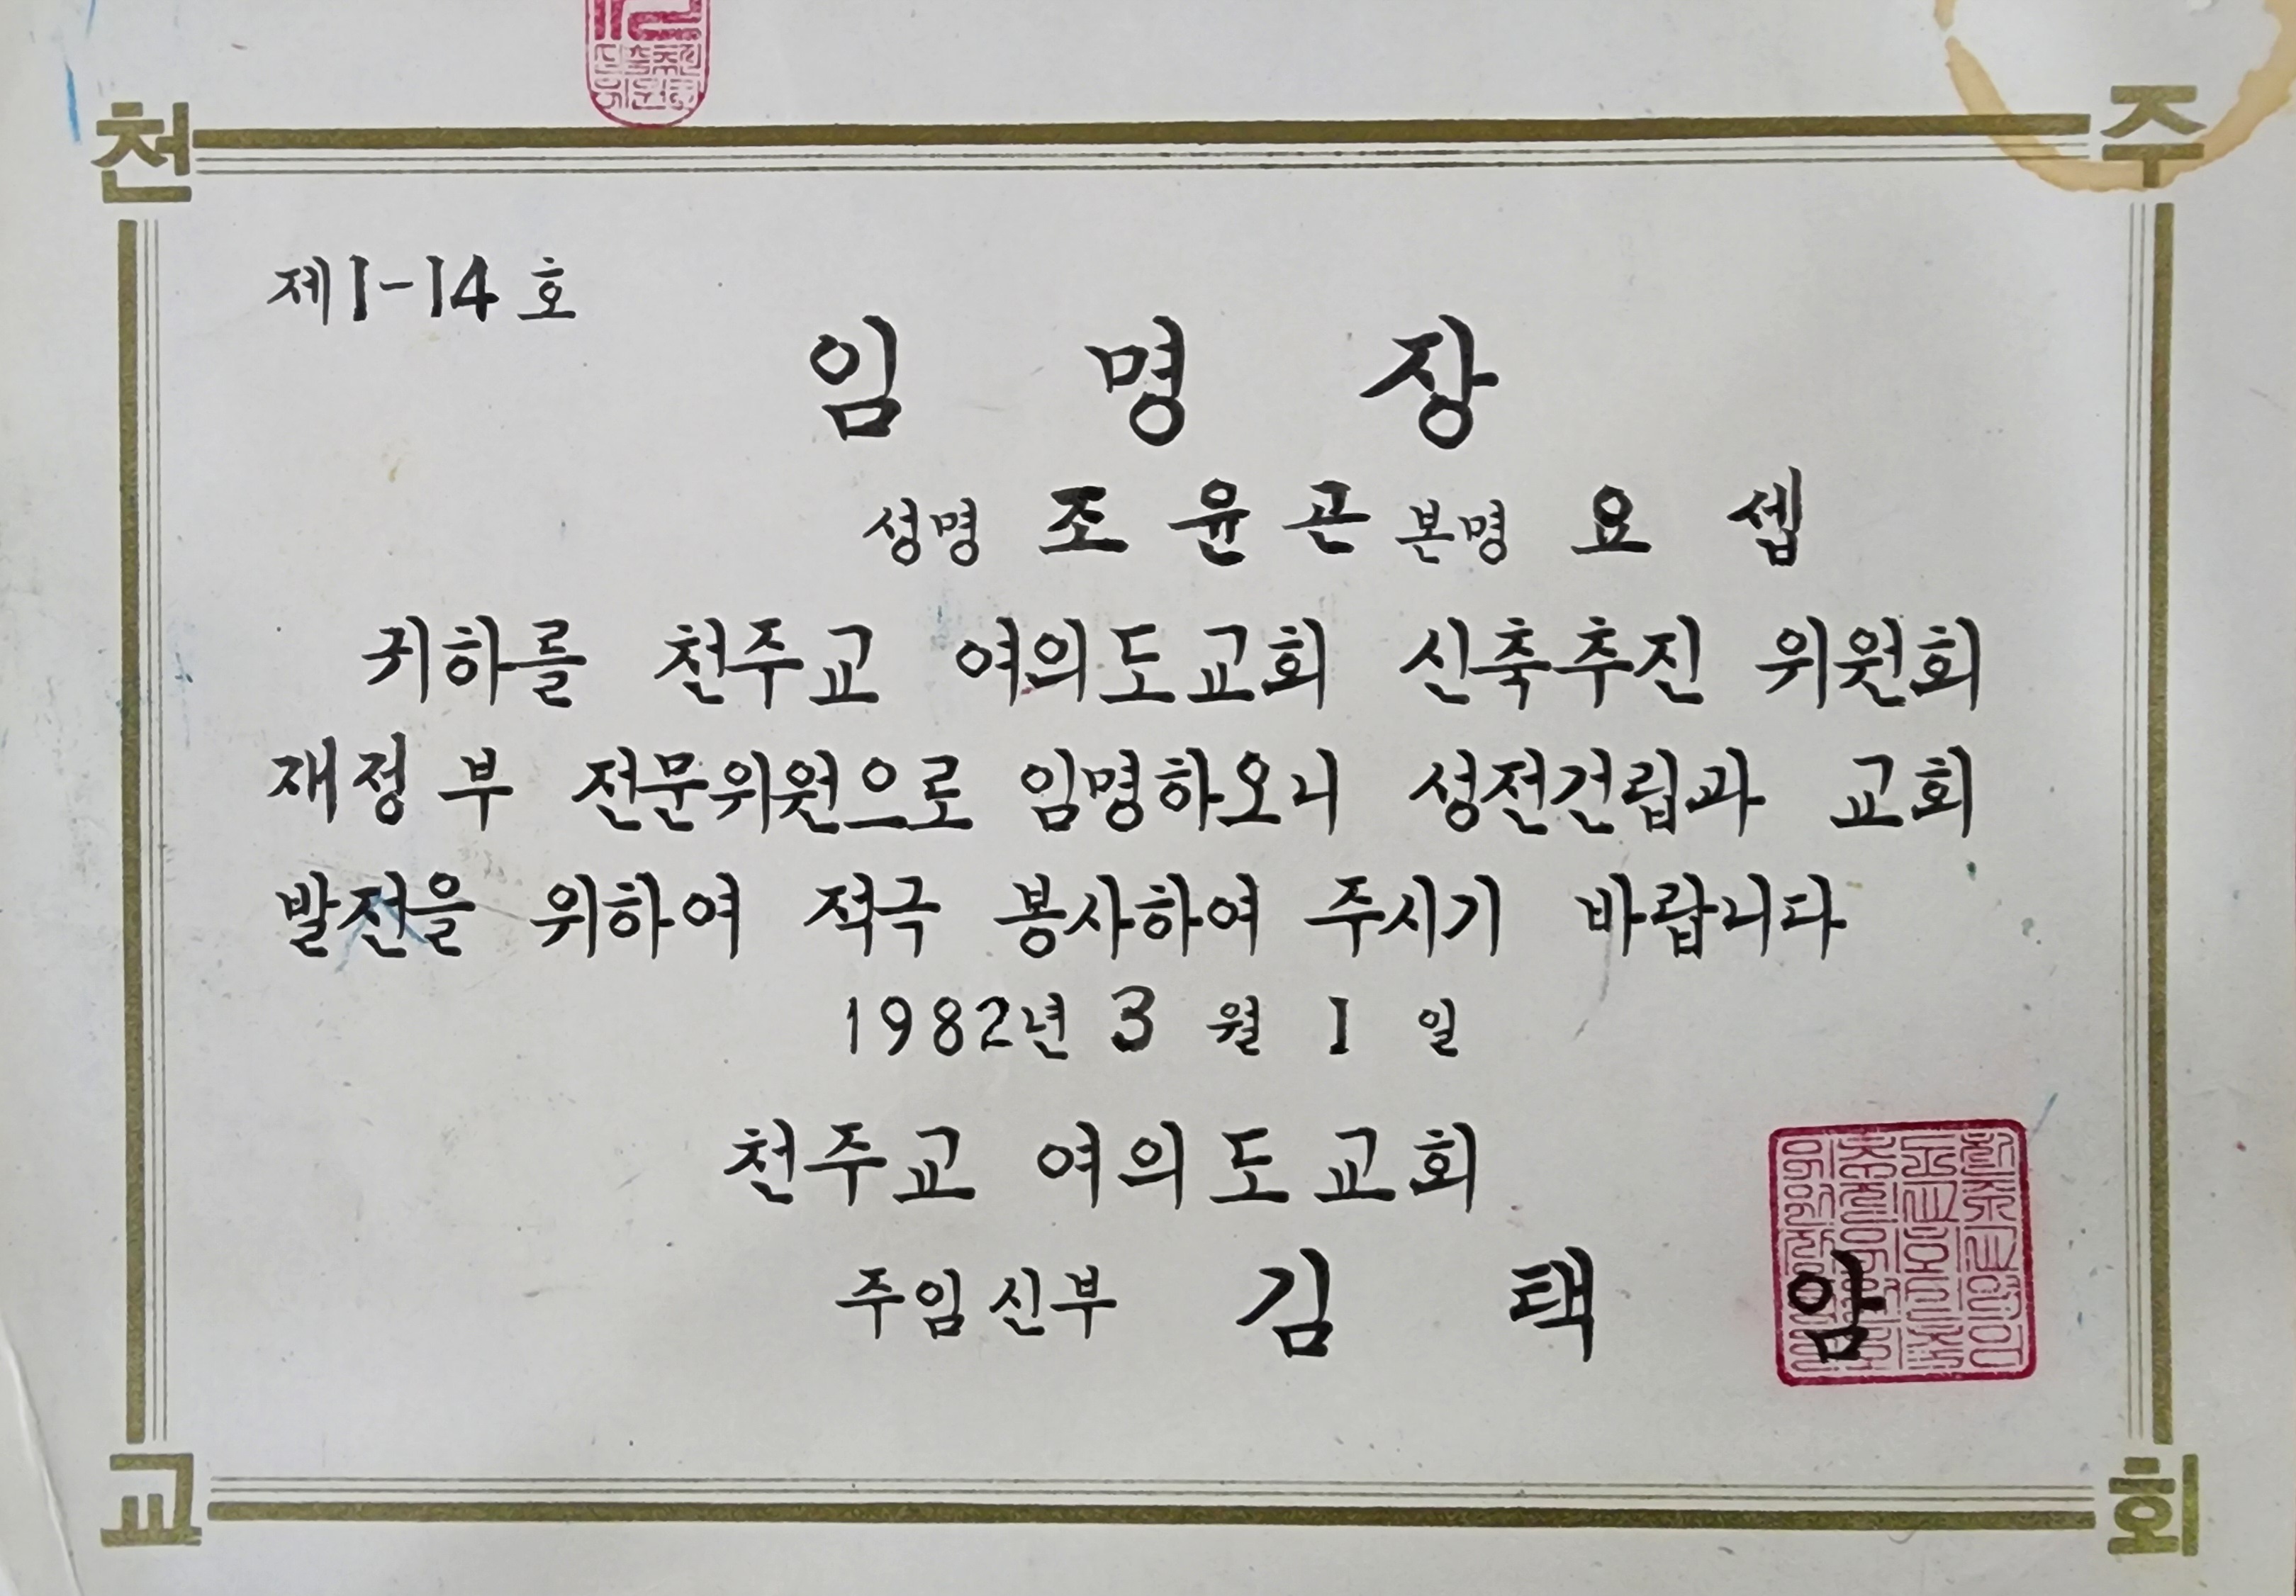 천 주
제1-14호
임 명 장
성명 조 윤 곤 본명 요 셉
귀하를 천주교 여의도교회 신축추진 위원회
재정부 전문위원으로 임명하오니 성전건립과 교회
발전을 위하여 적극 봉사하여 주시기 바랍니다
1982년 3 월 1 일
천주교 여의도교회
주임신부 김 택 암
교 회